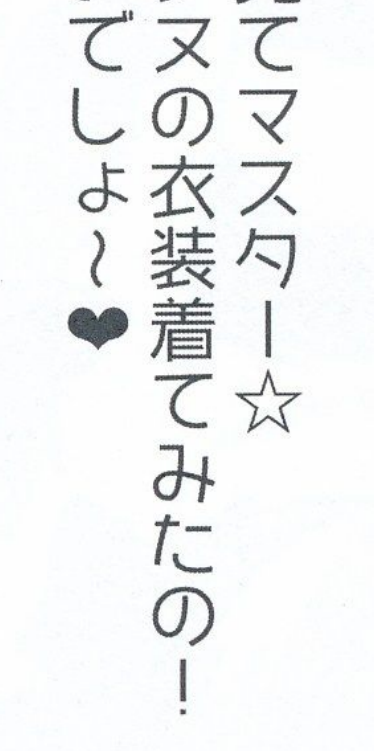 てマスター☆
ヌの衣装着てみたの！
でしょ～❤